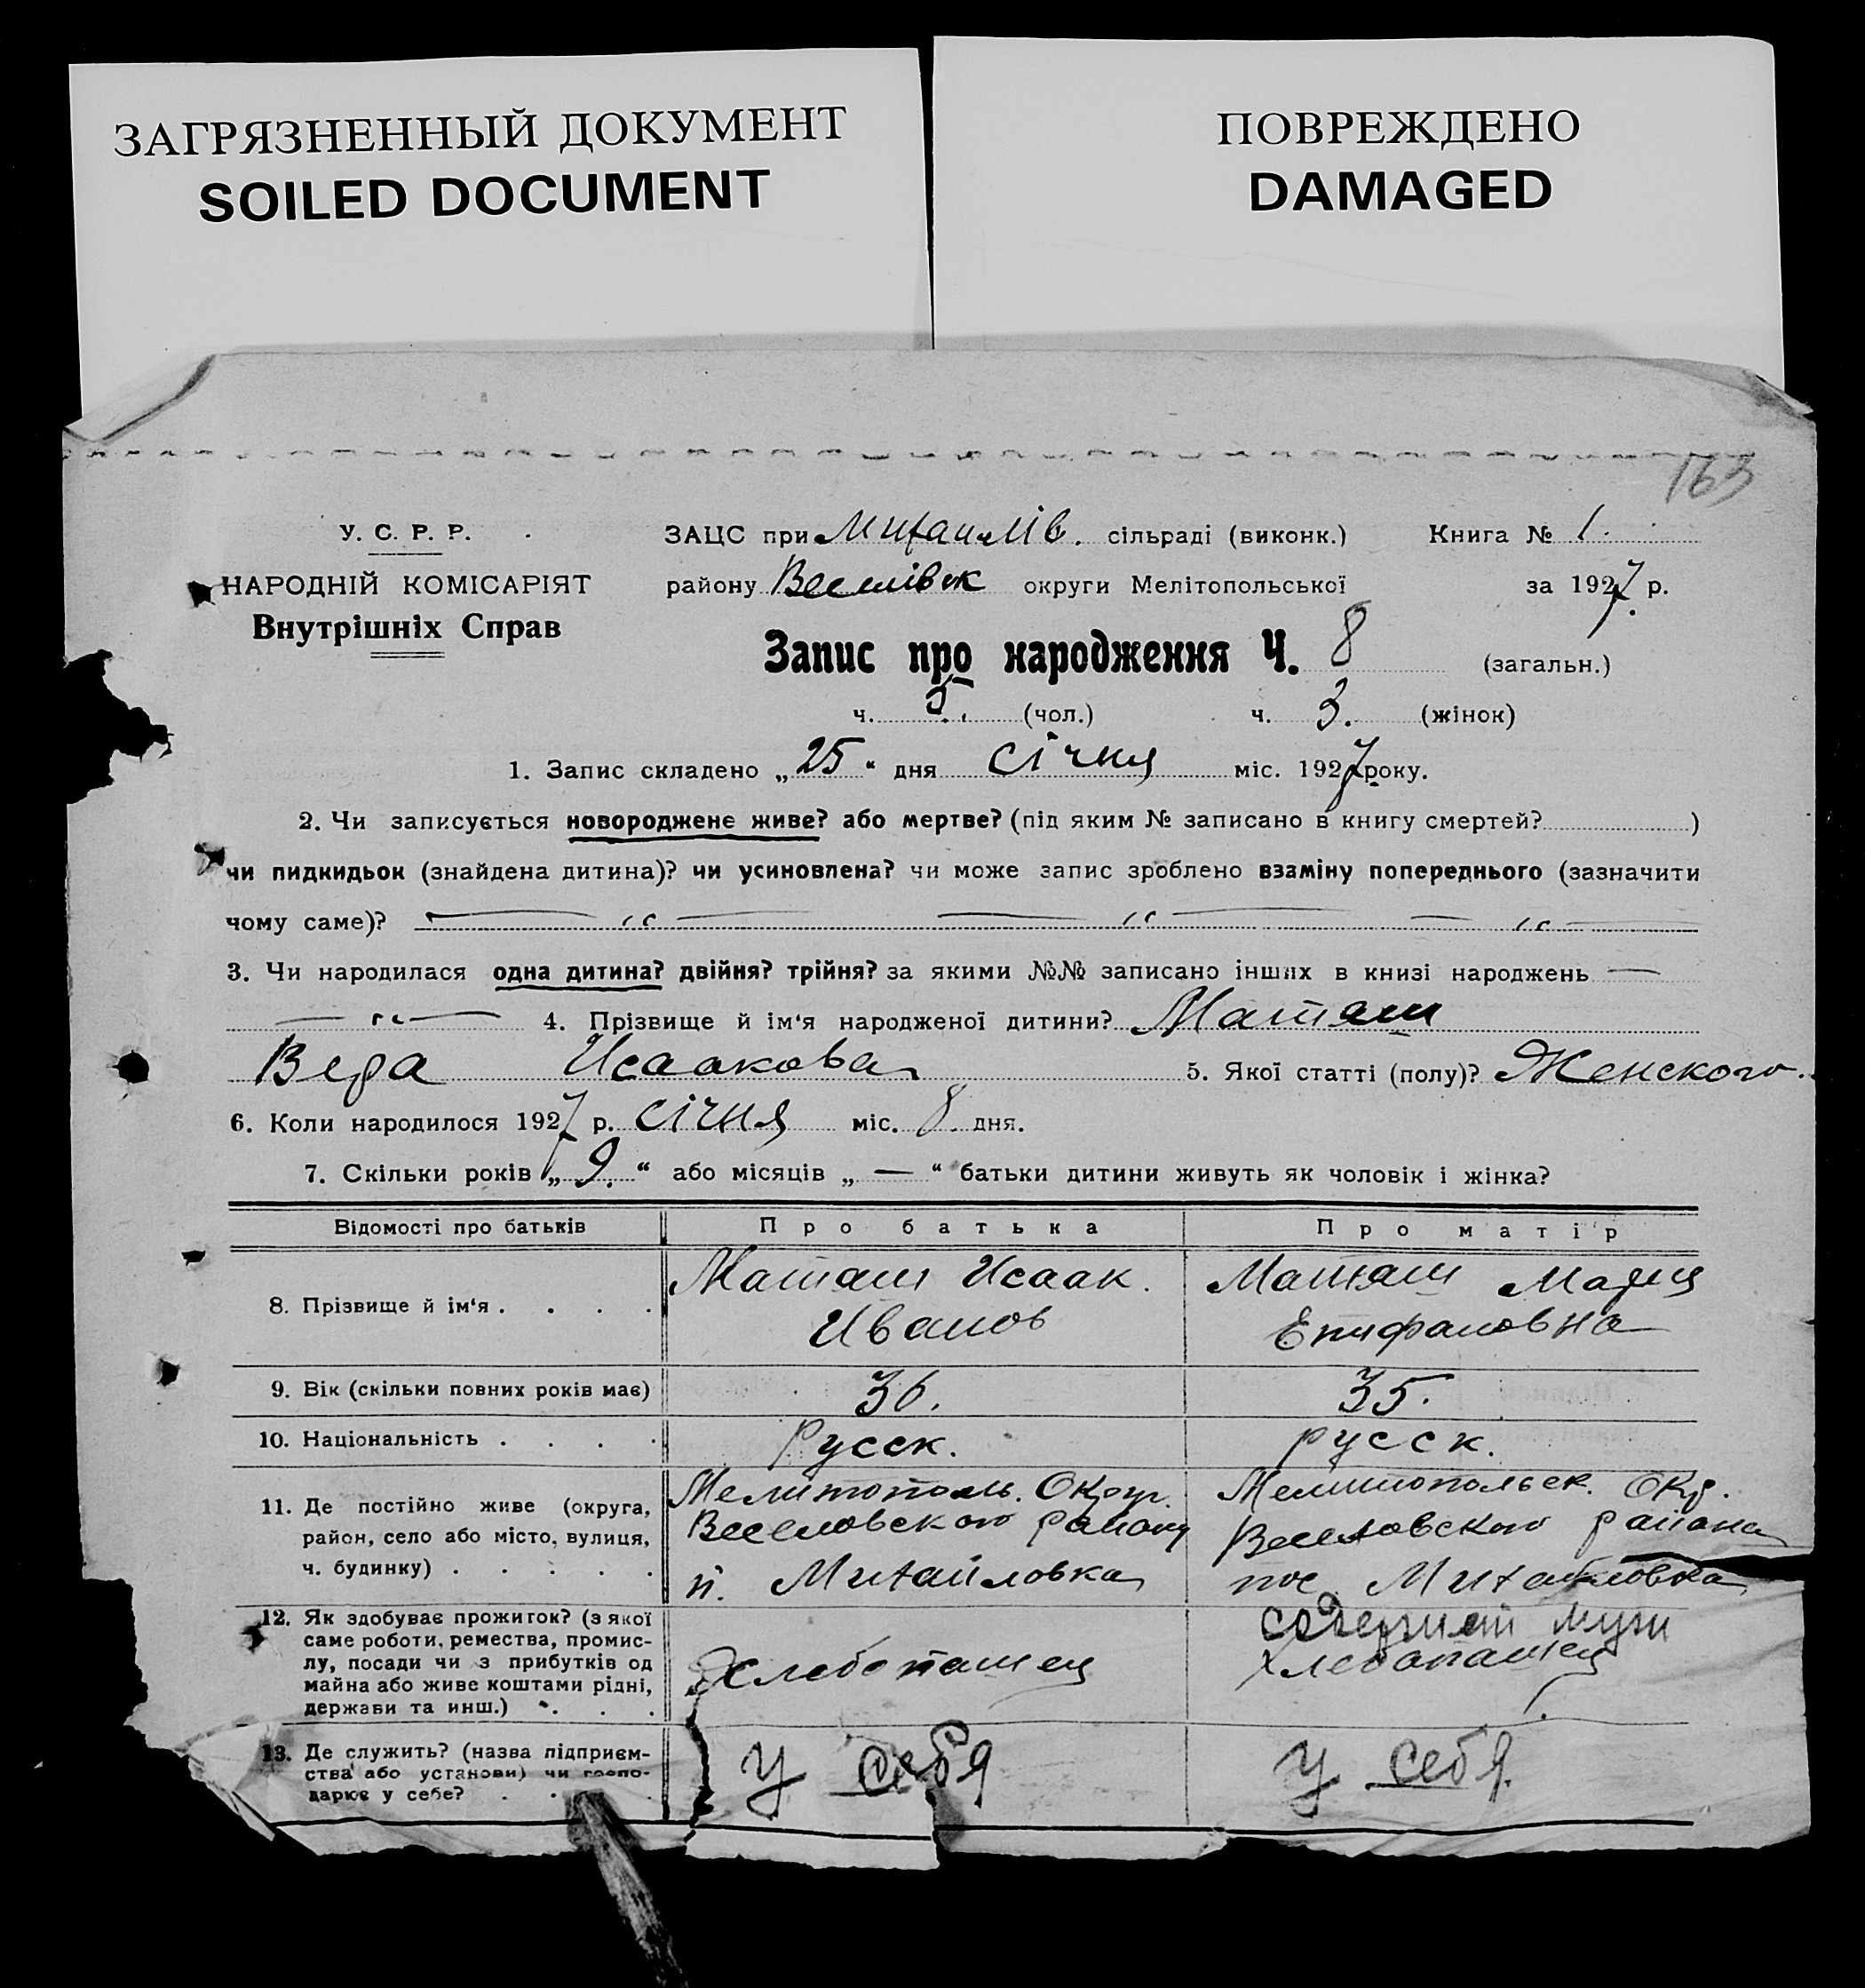 ЗАГРЯЗНЕННЫЙ ДОКУМЕНТ
SOILED DOCUMENT
ПОВРЕЖДЕНО
DAMAGED
163
У. С. Р. Р.
НАРОДНІЙ КОМІСАРІЯТ
Внутрішніх Справ
ЗАЦС при Михайлів. сільраді (виконк.)
району Веселівск округи Мелітопольської
Книга № 1.
за 1927 р.
Запис про народження Ч. 8 (загальн.)
ч. 5. (чол.) ч. 3. (жінок)
1. Запис складено „25“ дня січня міс. 1927 року.
2. Чи записується новороджене живе? або мертве? (під яким № записано в книгу смертей? )
чи пидкидьок (знайдена дитина)? чи усиновлена? чи може запис зроблено взаміну попереднього (зазначити
чому саме)?
3. Чи народилася одна дитина? двійня? трійня? за якими №№ записано інших в книзі народжень —
4. Прізвище й ім‘я народженої дитини? Матяш
Вера Исаакова 5. Якої статті (полу)? Женского.
6. Коли народилося 1927 р. січня міс. 8. дня.
7. Скільки років „9.“ або місяців „—“ батьки дитини живуть як чоловік і жінка?
Відомості про батьків Про батька Про матір
8. Прізвище й ім‘я . . . .
Матяш Исаак.
Иванов
Матяш Мария
Епифановна
9. Вік (скільки повних років має) 36. 35.
10. Національність . . . . Русск. русск.
11. Де постійно живе (округа,
район, село або місто, вулиця,
ч. будинку) . . . . .
Мелитополь. Округ.
Веселовского району
п. Михайловка
Мелитопольск. Окр.
Веселовского района
пос. Михайловка
12. Як здобуває прожиток? (з якої
саме роботи, ремества, промис-
лу, посади чи з прибутків од
майна або живе коштами рідні,
держави та инш.) . . .
Хлебопашец
содержит муж
хлебопашец
13. Де служить? (назва підприєм-
ства або установи) чи госпо-
дарює у себе? . .
У себя
У себя.